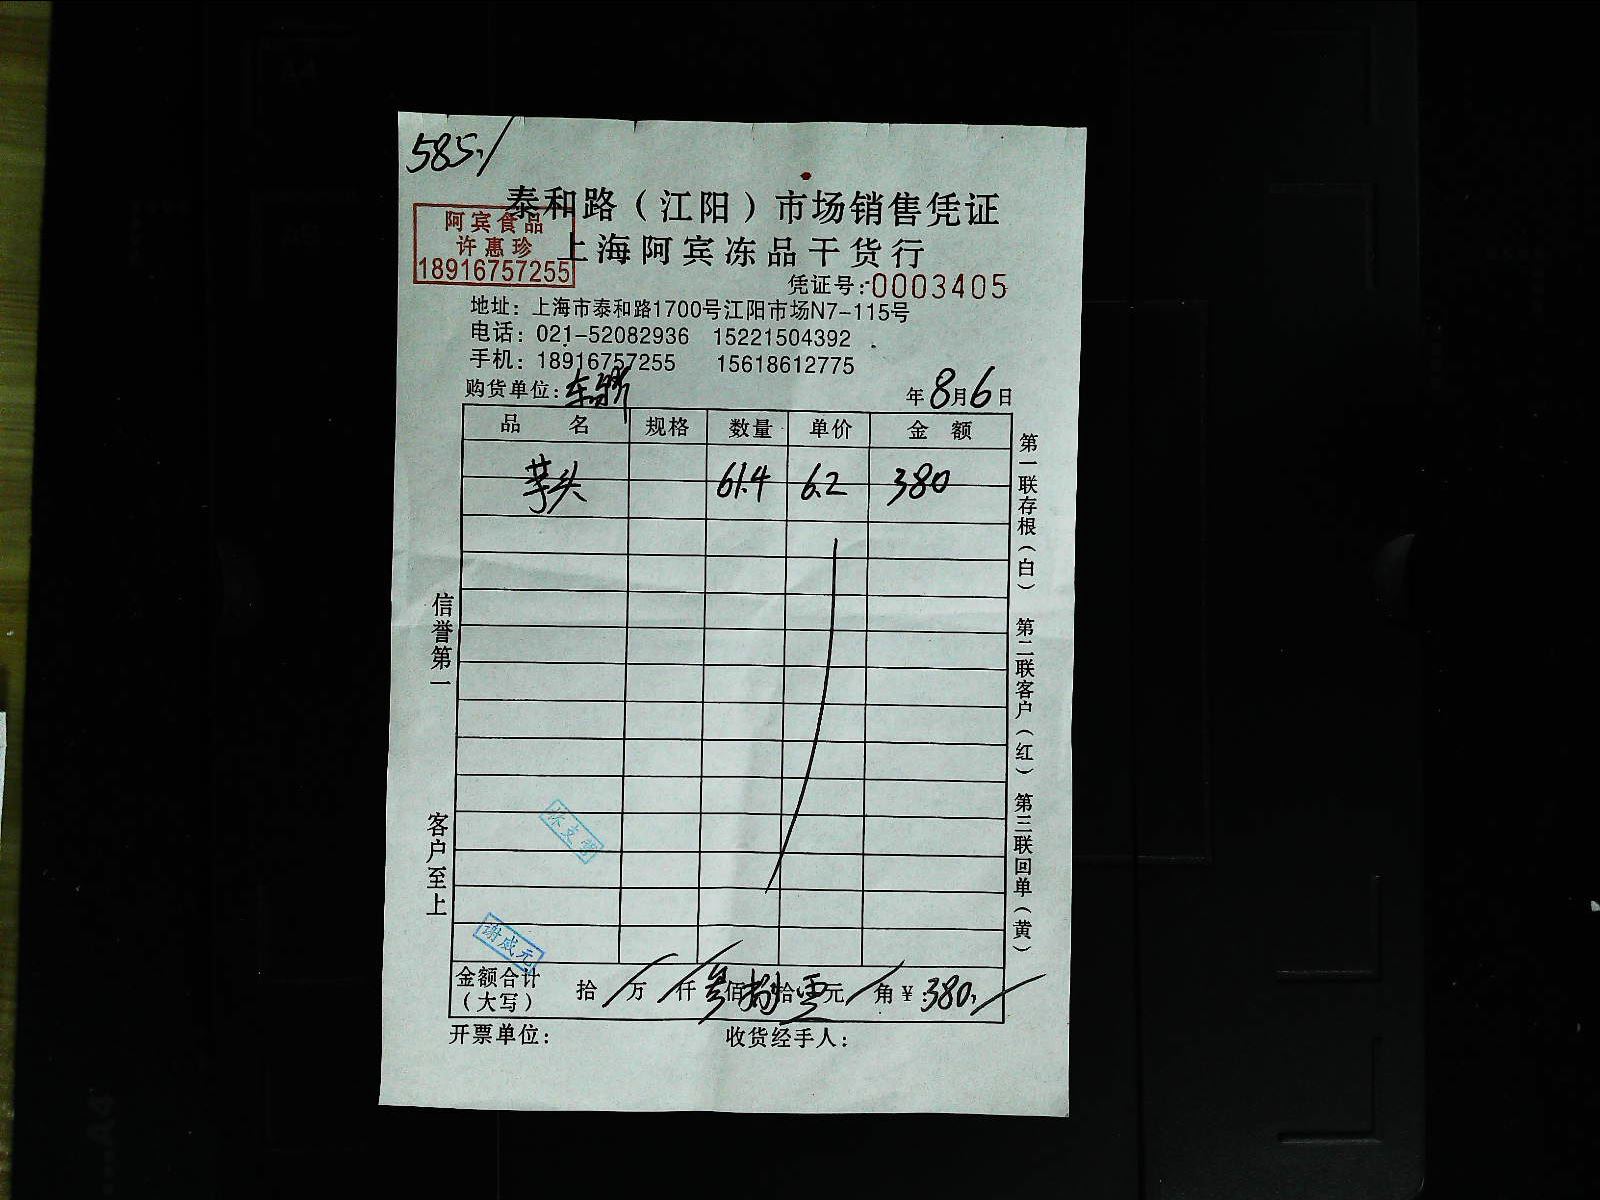 585.
泰和路（江阳）市场销售凭证
阿宾食品
许惠珍
18916757255
上海阿宾冻品干货行
凭证号:0003405
地址：上海市泰和路1700号江阳市场N7-115号
电话：021-52082936 15221504392
手机：18916757255 15618612775
购货单位:
年8月6日
品 名 规格 数量 单价 金 额
芋头 61.4 6.2 380
第一联存根（白） 第二联客户（红） 第三联回单（黄）
信誉第一
客户至上
谢咸元
金额合计（大写） 拾 万 仟 叁佰捌拾零元 角 ¥:380.
开票单位: 收货经手人: